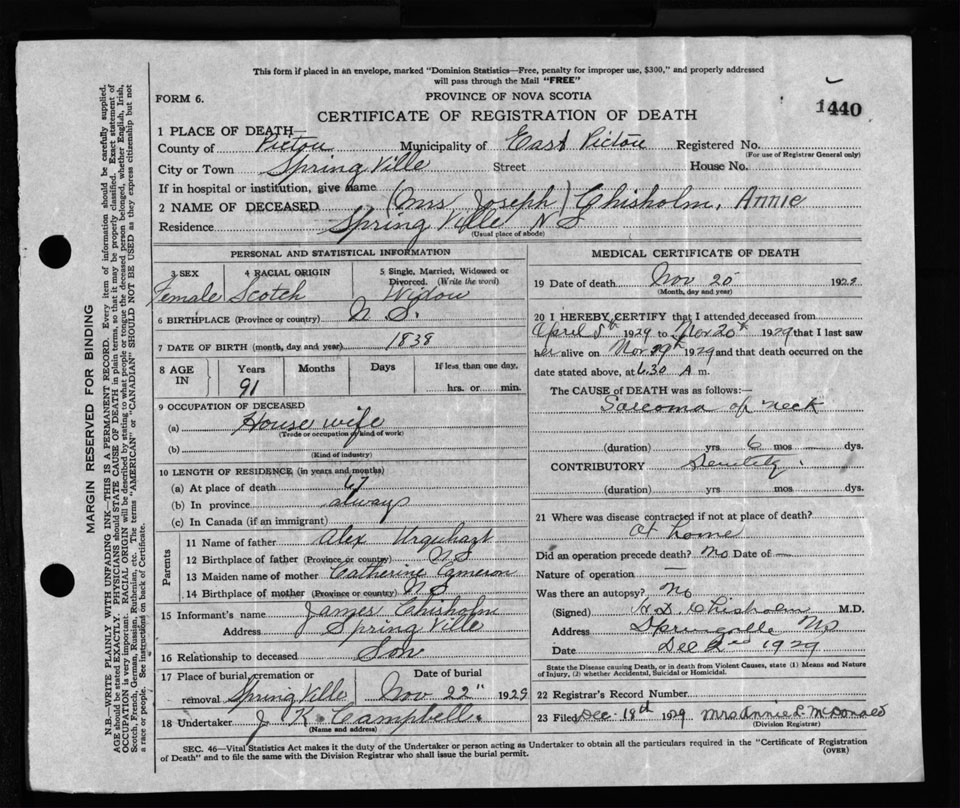 This form if placed in an envelope, marked "Dominion Statistics—Free, penalty for improper use, $300," and properly addressed
will pass through the Mail "FREE"
FORM 6.
PROVINCE OF NOVA SCOTIA
1440
CERTIFICATE OF REGISTRATION OF DEATH
1 PLACE OF DEATH—
County of Pictou Municipality of East Pictou Registered No.
(For use of Registrar General only)
City or Town Spring Ville Street House No.
If in hospital or institution, give name
2 NAME OF DECEASED (Mrs Joseph) Chisholm, Annie
Residence Spring Ville N S
(Usual place of abode)
PERSONAL AND STATISTICAL INFORMATION
3 SEX 4 RACIAL ORIGIN 5 Single, Married, Widowed or
Divorced. (Write the word)
Female Scotch Widow
6 BIRTHPLACE (Province or country) N. S.
7 DATE OF BIRTH (month, day and year) 1838
8 AGE IN Years Months Days If less than one day,
91 hrs. or min.
9 OCCUPATION OF DECEASED
(a) House wife
(Trade or occupation or kind of work)
(b)
(Kind of industry)
10 LENGTH OF RESIDENCE (in years and months)
(a) At place of death 67
(b) In province always
(c) In Canada (if an immigrant)
Parents
11 Name of father Alex Urquhart
12 Birthplace of father (Province or country) N S
13 Maiden name of mother Catherine Cameron
14 Birthplace of mother (Province or country) N S
15 Informant's name James Chisholm
Address Spring Ville
16 Relationship to deceased Son
17 Place of burial, cremation or Date of burial
removal Spring Ville Nov 22" 1929
18 Undertaker J K Campbell.
(Name and address)
MEDICAL CERTIFICATE OF DEATH
19 Date of death Nov 20 1929
(Month, day and year)
20 I HEREBY CERTIFY that I attended deceased from
April 5th 1929 to Nov 20th 1929 that I last saw
her alive on Nov 19th 1929 and that death occurred on the
date stated above, at 6.30 A m.
The CAUSE OF DEATH was as follows:—
Sarcoma of neck
(duration) yrs 6 mos dys.
CONTRIBUTORY Senility.
(duration) yrs mos dys.
21 Where was disease contracted if not at place of death?
At home
Did an operation precede death? No Date of —
Nature of operation —
Was there an autopsy? No
(Signed) Chisholm M.D.
Address Springville NS
Date Dec 2nd 1929
State the Disease causing Death, or in death from Violent Causes, state (1) Means and Nature
of Injury, (2) whether Accidental, Suicidal or Homicidal.
22 Registrar's Record Number
23 Filed Dec. 18th 1929 Mrs Annie L McDonald
(Division Registrar)
SEC. 46—Vital Statistics Act makes it the duty of the Undertaker or person acting as Undertaker to obtain all the particulars required in the "Certificate of Registration
of Death" and to file the same with the Division Registrar who shall issue the burial permit.
(OVER)
MARGIN RESERVED FOR BINDING
N.B.—WRITE PLAINLY WITH UNFADING INK—THIS IS A PERMANENT RECORD. Every item of information should be carefully supplied.
AGE should be stated EXACTLY. PHYSICIANS should STATE CAUSE OF DEATH in plain terms, so that it may be properly classified. Exact statement of
OCCUPATION is very important. RACIAL ORIGIN will be described by stating to what people or tongue the deceased person belonged, whether English, Irish,
Scotch, French, German, Russian, Ruthenian, etc. The terms "AMERICAN" or "CANADIAN" SHOULD NOT BE USED as they express citizenship but not
a race or people. See instructions on back of Certificate.